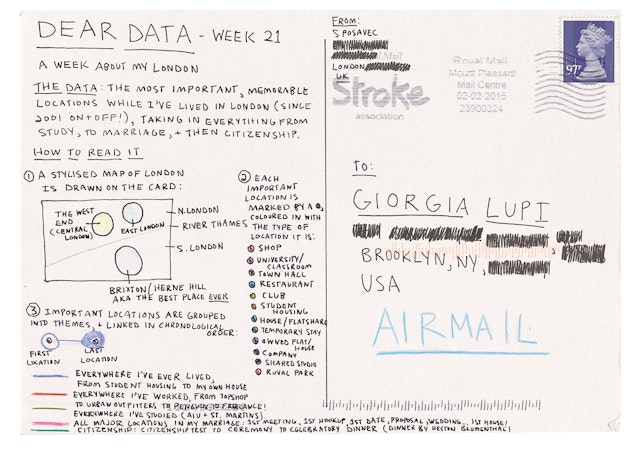 DEAR DATA - WEEK 21
A WEEK ABOUT MY LONDON
THE DATA: THE MOST IMPORTANT, MEMORABLE
LOCATIONS WHILE I'VE LIVED IN LONDON (SINCE
2001 ON+OFF!), TAKING IN EVERYTHING FROM
STUDY, TO MARRIAGE, + THEN CITIZENSHIP.
HOW TO READ IT
① A STYLISED MAP OF LONDON
IS DRAWN ON THE CARD:
THE WEST
END
(CENTRAL
LONDON)
EAST LONDON
N.LONDON
RIVER THAMES
S.LONDON
BRIXTON/HERNE HILL
AKA THE BEST PLACE EVER
② EACH
IMPORTANT
LOCATION IS
MARKED BY A
COLOURED IN WITH
THE TYPE OF
LOCATION IT IS:
SHOP
UNIVERSITY/
CLASSROOM
TOWN HALL
RESTAURANT
CLUB
STUDENT
HOUSING
HOUSE/FLATSHARE
TEMPORARY STAY
OWNED FLAT/
HOUSE
COMPANY
SHARED STUDIO
ROYAL PARK
③ IMPORTANT LOCATIONS ARE GROUPED
INTO THEMES, + LINKED IN CHRONOLOGICAL
ORDER:
FIRST
LOCATION
LAST
LOCATION
EVERYWHERE I'VE EVER LIVED,
FROM STUDENT HOUSING TO MY OWN HOUSE
EVERYWHERE I'VE WORKED, FROM TOPSHOP
TO URBAN OUTFITTERS TO PENGUIN TO FREELANCE!
EVERYWHERE I'VE STUDIED (AIU + ST. MARTINS)
ALL MAJOR LOCATIONS IN MY MARRIAGE: 1ST MEETING, 1ST HOOKUP, 1ST DATE, PROPOSAL, WEDDING, 1ST HOUSE!
CITIZENSHIP: CITIZENSHIP TEST TO CEREMONY TO CELEBRATORY DINNER (DINNER BY HESTON BLUMENTHAL)
FROM:
S POSAVEC
LONDON
UK
Stroke
association
Royal Mail
Mount Pleasant
Mail Centre
02-02-2015
23900324
97P
TO:
GIORGIA LUPI
BROOKLYN, NY,
USA
AIRMAIL